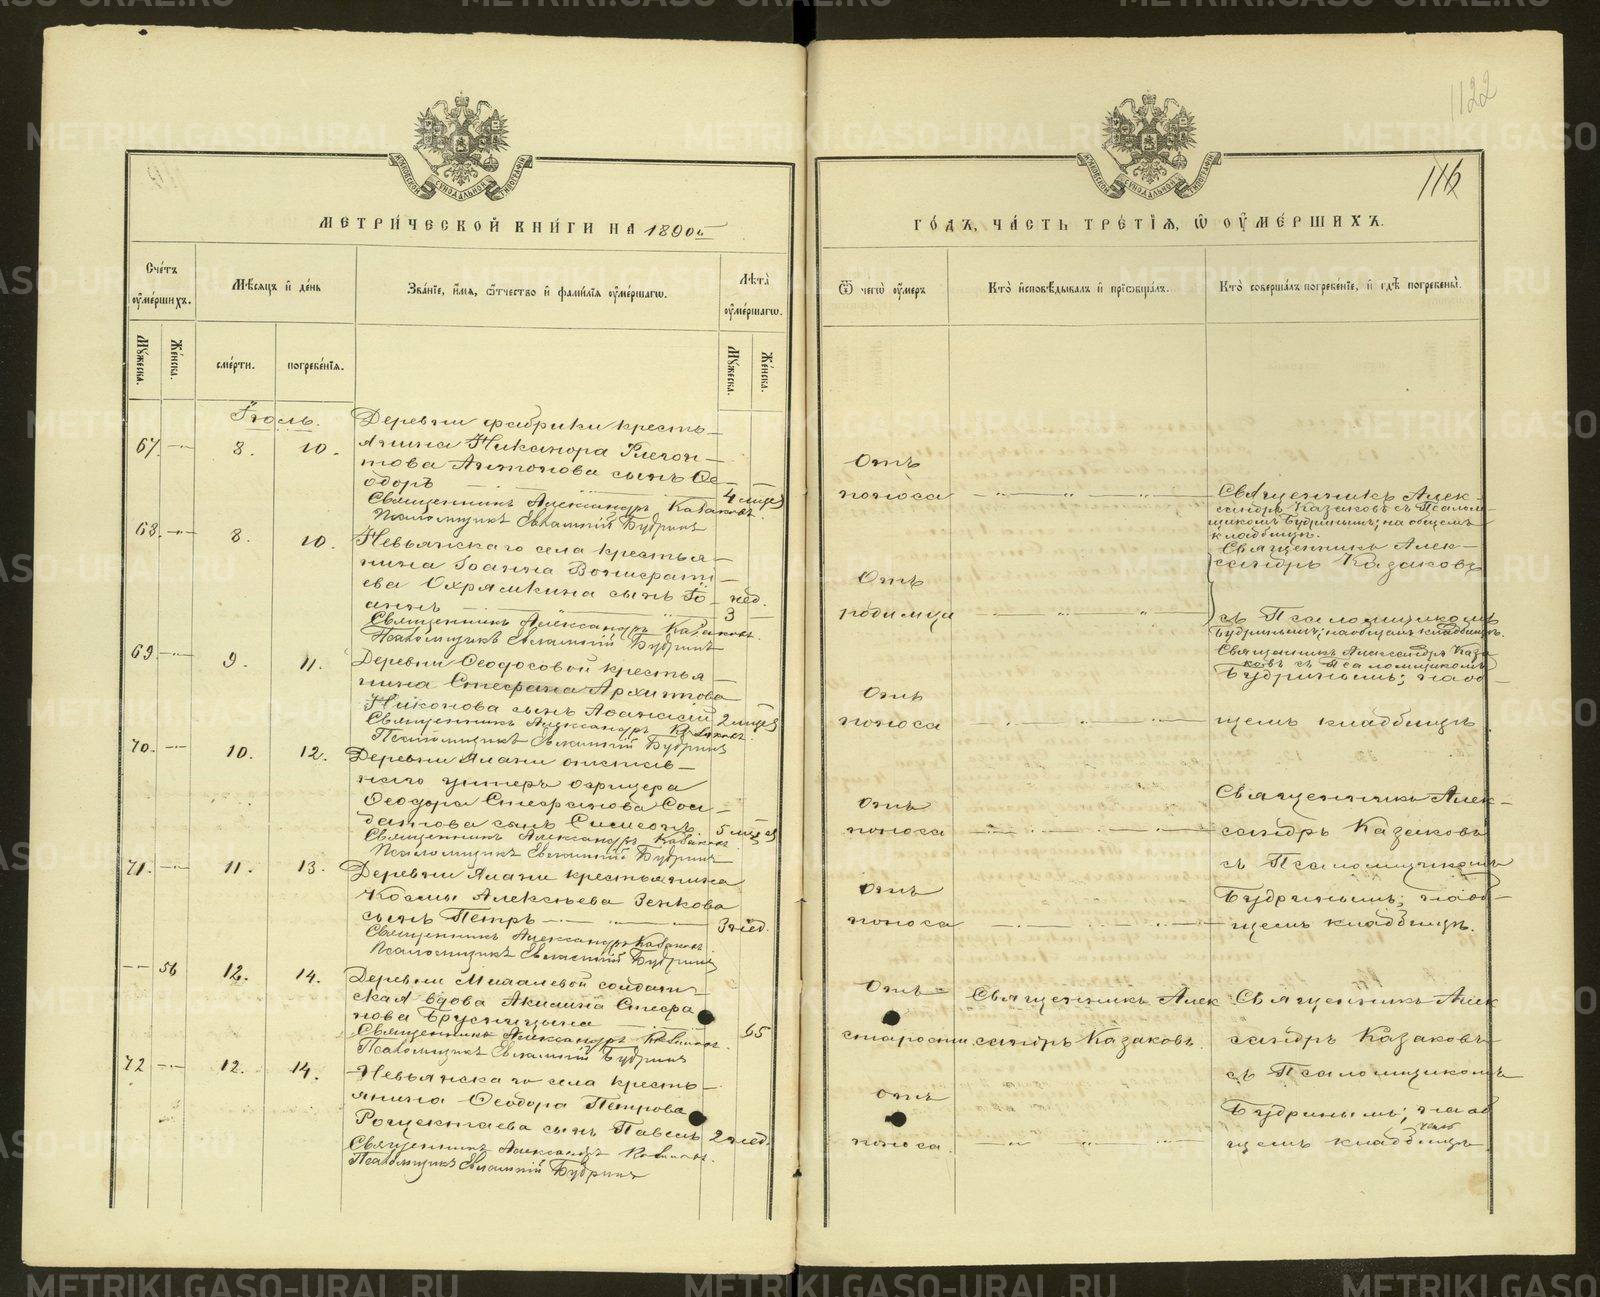 1122
116
МЕТРИ́ЧЕСКОЙ КНИ́ГИ НА 1890й
ГО́ДЪ, ЧА́СТЬ ТРЕ́ТІЯ, Ѡ ОУ҆МЕ́РШИХЪ.
Сче́тъ оу҆ме́ршихъ.
Мѣ́сяцъ и҆ де́нь
Зва́нїе, и҆́мя, ѻ҆́тчество и҆ фами́лїя оу҆ме́ршагѡ.
Лѣ́та оу҆ме́ршагѡ.
Ѿ чегѡ̀ оу҆́меръ
Кто̀ и҆сповѣ́дывалъ и҆ прїѡбща́лъ.
Кто̀ соверша́лъ погребе́нїе, и҆ гдѣ̀ погребены̀.
Мꙋ́жеска.
Же́нска.
сме́рти.
погребе́нїя.
Мꙋ́жеска.
Же́нска.
Іюль.
67. 8. 10.
Деревни фабрики кресть-
янина Никанора
Антонова сынъ Ѳе-
одоръ
4
Священникъ Александръ Казаковъ.
Псаломщикъ Евлампій Будринъ
Отъ
поноса
Священникъ Алек-
сандръ Казаковъ съ Псалом-
щикомъ Будринымъ; на общемъ
кладбищѣ.
68. 8. 10.
Невьянскаго села крестья-
нина Іоанна
Охрямкина сынъ Іо-
аннъ
3 нед.
Священникъ Александръ Казаковъ.
Псаломщикъ Евлампій Будринъ
Отъ
родимца
Священникъ Алек-
сандръ Казаковъ
съ Псаломщикомъ
Будринымъ; на общемъ кладбищѣ.
69. 9. 11.
Деревни Ѳеодосовой крестья-
нина Стефана Архипова
Никонова сынъ Аѳанасій
2
Священникъ Александръ Казаковъ.
Псаломщикъ Евлампій Будринъ
Отъ
поноса
Священникъ Александръ Каза-
ковъ съ Псаломщикомъ
Будринымъ; на об-
щемъ кладбищѣ.
70. 10. 12.
Деревни Ялани отстав-
наго унтеръ офицера
Ѳеодора Стефанова Сол-
датова сынъ Симеонъ.
5
Священникъ Александръ Казаковъ.
Псаломщикъ Евлампій Будринъ
Отъ
поноса
Священникъ Алек-
сандръ Казаковъ
съ Псаломщикомъ
Будринымъ; на об-
щемъ кладбищѣ.
71. 11. 13.
Деревни Ялани крестьянина
Космы Алексѣева Зенкова
сынъ Петръ
3 нед.
Священникъ Александръ Казаковъ.
Псаломщикъ Евлампій Будринъ
Отъ
поноса
56 12. 14.
Деревни солдат-
ская вдова Акилина Стефа
нова Брусницына
65
Священникъ Александръ Казаковъ.
Псаломщикъ Евлампій Будринъ
Отъ
старости
Священникъ Алек
сандръ Казаковъ.
Священникъ Алек
сандръ Казаковъ
съ Псаломщикомъ
Будринымъ; на об
щемъ кладбищѣ
72 12. 14.
Невьянскаго села кресть-
янина Ѳеодора Петрова
сынъ Павелъ
2 нед.
Священникъ Александръ Казаковъ.
Псаломщикъ Евлампій Будринъ
отъ
поноса.
METRIKI.GASO-URAL.RU